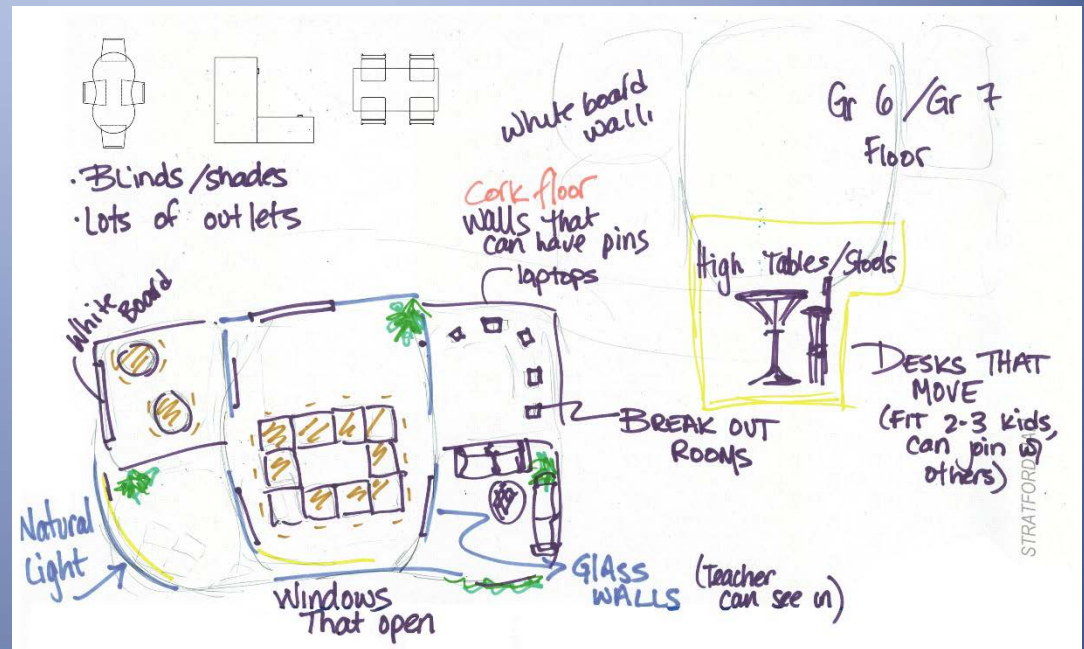 · Blinds/shades
· Lots of outlets
White board
walls
Cork floor
walls that
can have pins
laptops
Gr 6/Gr 7
Floor
High Tables/Stools
White
Board
BREAK OUT
ROOMS
DESKS THAT
MOVE
(FIT 2-3 kids,
can pin w/
others)
Natural
Light
Windows
That open
GLASS
WALLS
(Teacher
can see in)